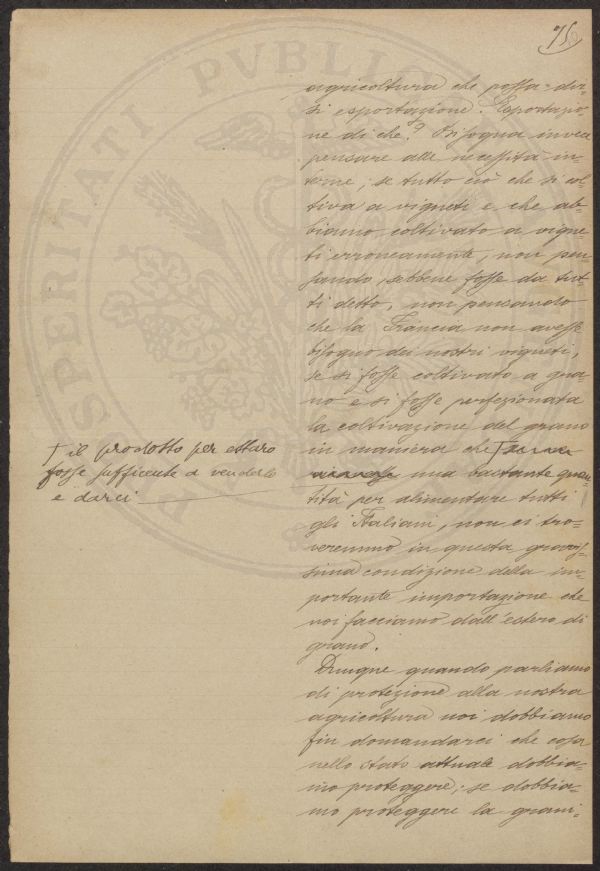 75
agricoltura che possa dir-
si esportazione. Esportazio-
ne di che? Bisogna invece
pensare alle necessità in-
terne; se tutto ciò che si col-
tiva a vigneti e che ab-
biamo coltivato a vigne-
ti erroneamente, non pen-
sando, sebbene fosse da tut-
ti detto, non pensando
che la Francia non avesse
bisogno dei nostri vigneti,
se si fosse coltivato a gra-
no e si fosse perfezionata
la coltivazione del grano
in maniera che
una bastante quan-
tità per alimentare tutti
gli Italiani, non ci tro-
veremmo in questa gravis-
sima condizione della im-
portante importazione che
noi facciamo dall'estero di
grano.
Dunque quando parliamo
di protezione alla nostra
agricoltura noi dobbiamo
fin domandarci che cosa
nello stato attuale dobbia-
mo proteggere; se dobbia-
mo proteggere la grani-
† il prodotto per ettaro
fosse sufficente a venderlo
e darci
PVBLI
SPERITATI